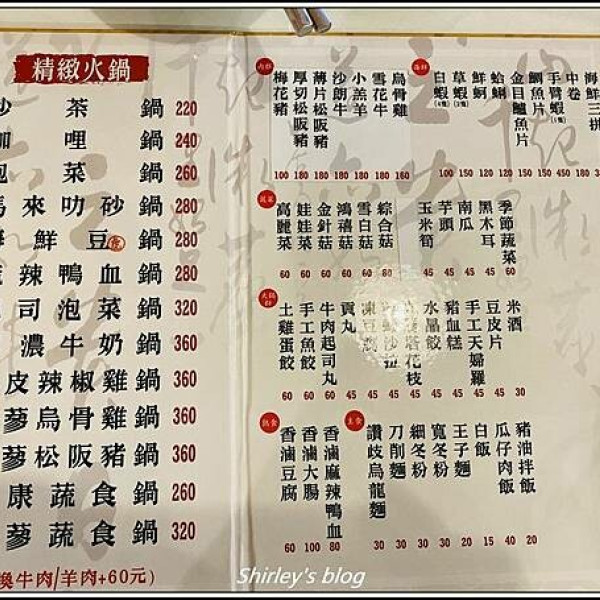 精緻火鍋
茶鍋 220
哩鍋 240
菜鍋 260
來叻砂鍋 280
鮮豆腐鍋 280
辣鴨血鍋 280
司泡菜鍋 320
濃牛奶鍋 360
皮辣椒雞鍋 360
蔘烏骨雞鍋 360
蔘松阪豬鍋 360
康蔬食鍋 260
蔘蔬食鍋 320
換牛肉/羊肉+60元)
梅花豬 100
厚切松阪豬 180
薄片松阪豬 180
沙朗牛 180
小羔羊 180
雪花牛 180
烏骨雞 160
白蝦 100
草蝦 150
鮮蚵 120
蛤蜊 120
金目鱸魚片
鯛魚片
手臂蝦
中卷
海鮮三拼
蔬菜
高麗菜 60
娃娃菜 60
金針菇
鴻禧菇
雪白菇
綜合菇 80
玉米筍
芋頭 45
南瓜 45
黑木耳 45
季節蔬菜
火鍋料
土雞蛋餃 60
手工魚餃 60
牛肉起司丸
貢丸
花枝
水晶餃
豬血糕
手工天婦羅
豆皮片
米酒 30
熟食
香滷豆腐 60
香滷大腸 100
香滷麻辣鴨血 80
主食
讚岐烏龍麵 30
刀削麵 30
細冬粉 30
寬冬粉 30
王子麵 20
白飯 15
瓜仔肉飯 40
豬油拌飯 20
Shirley's blog